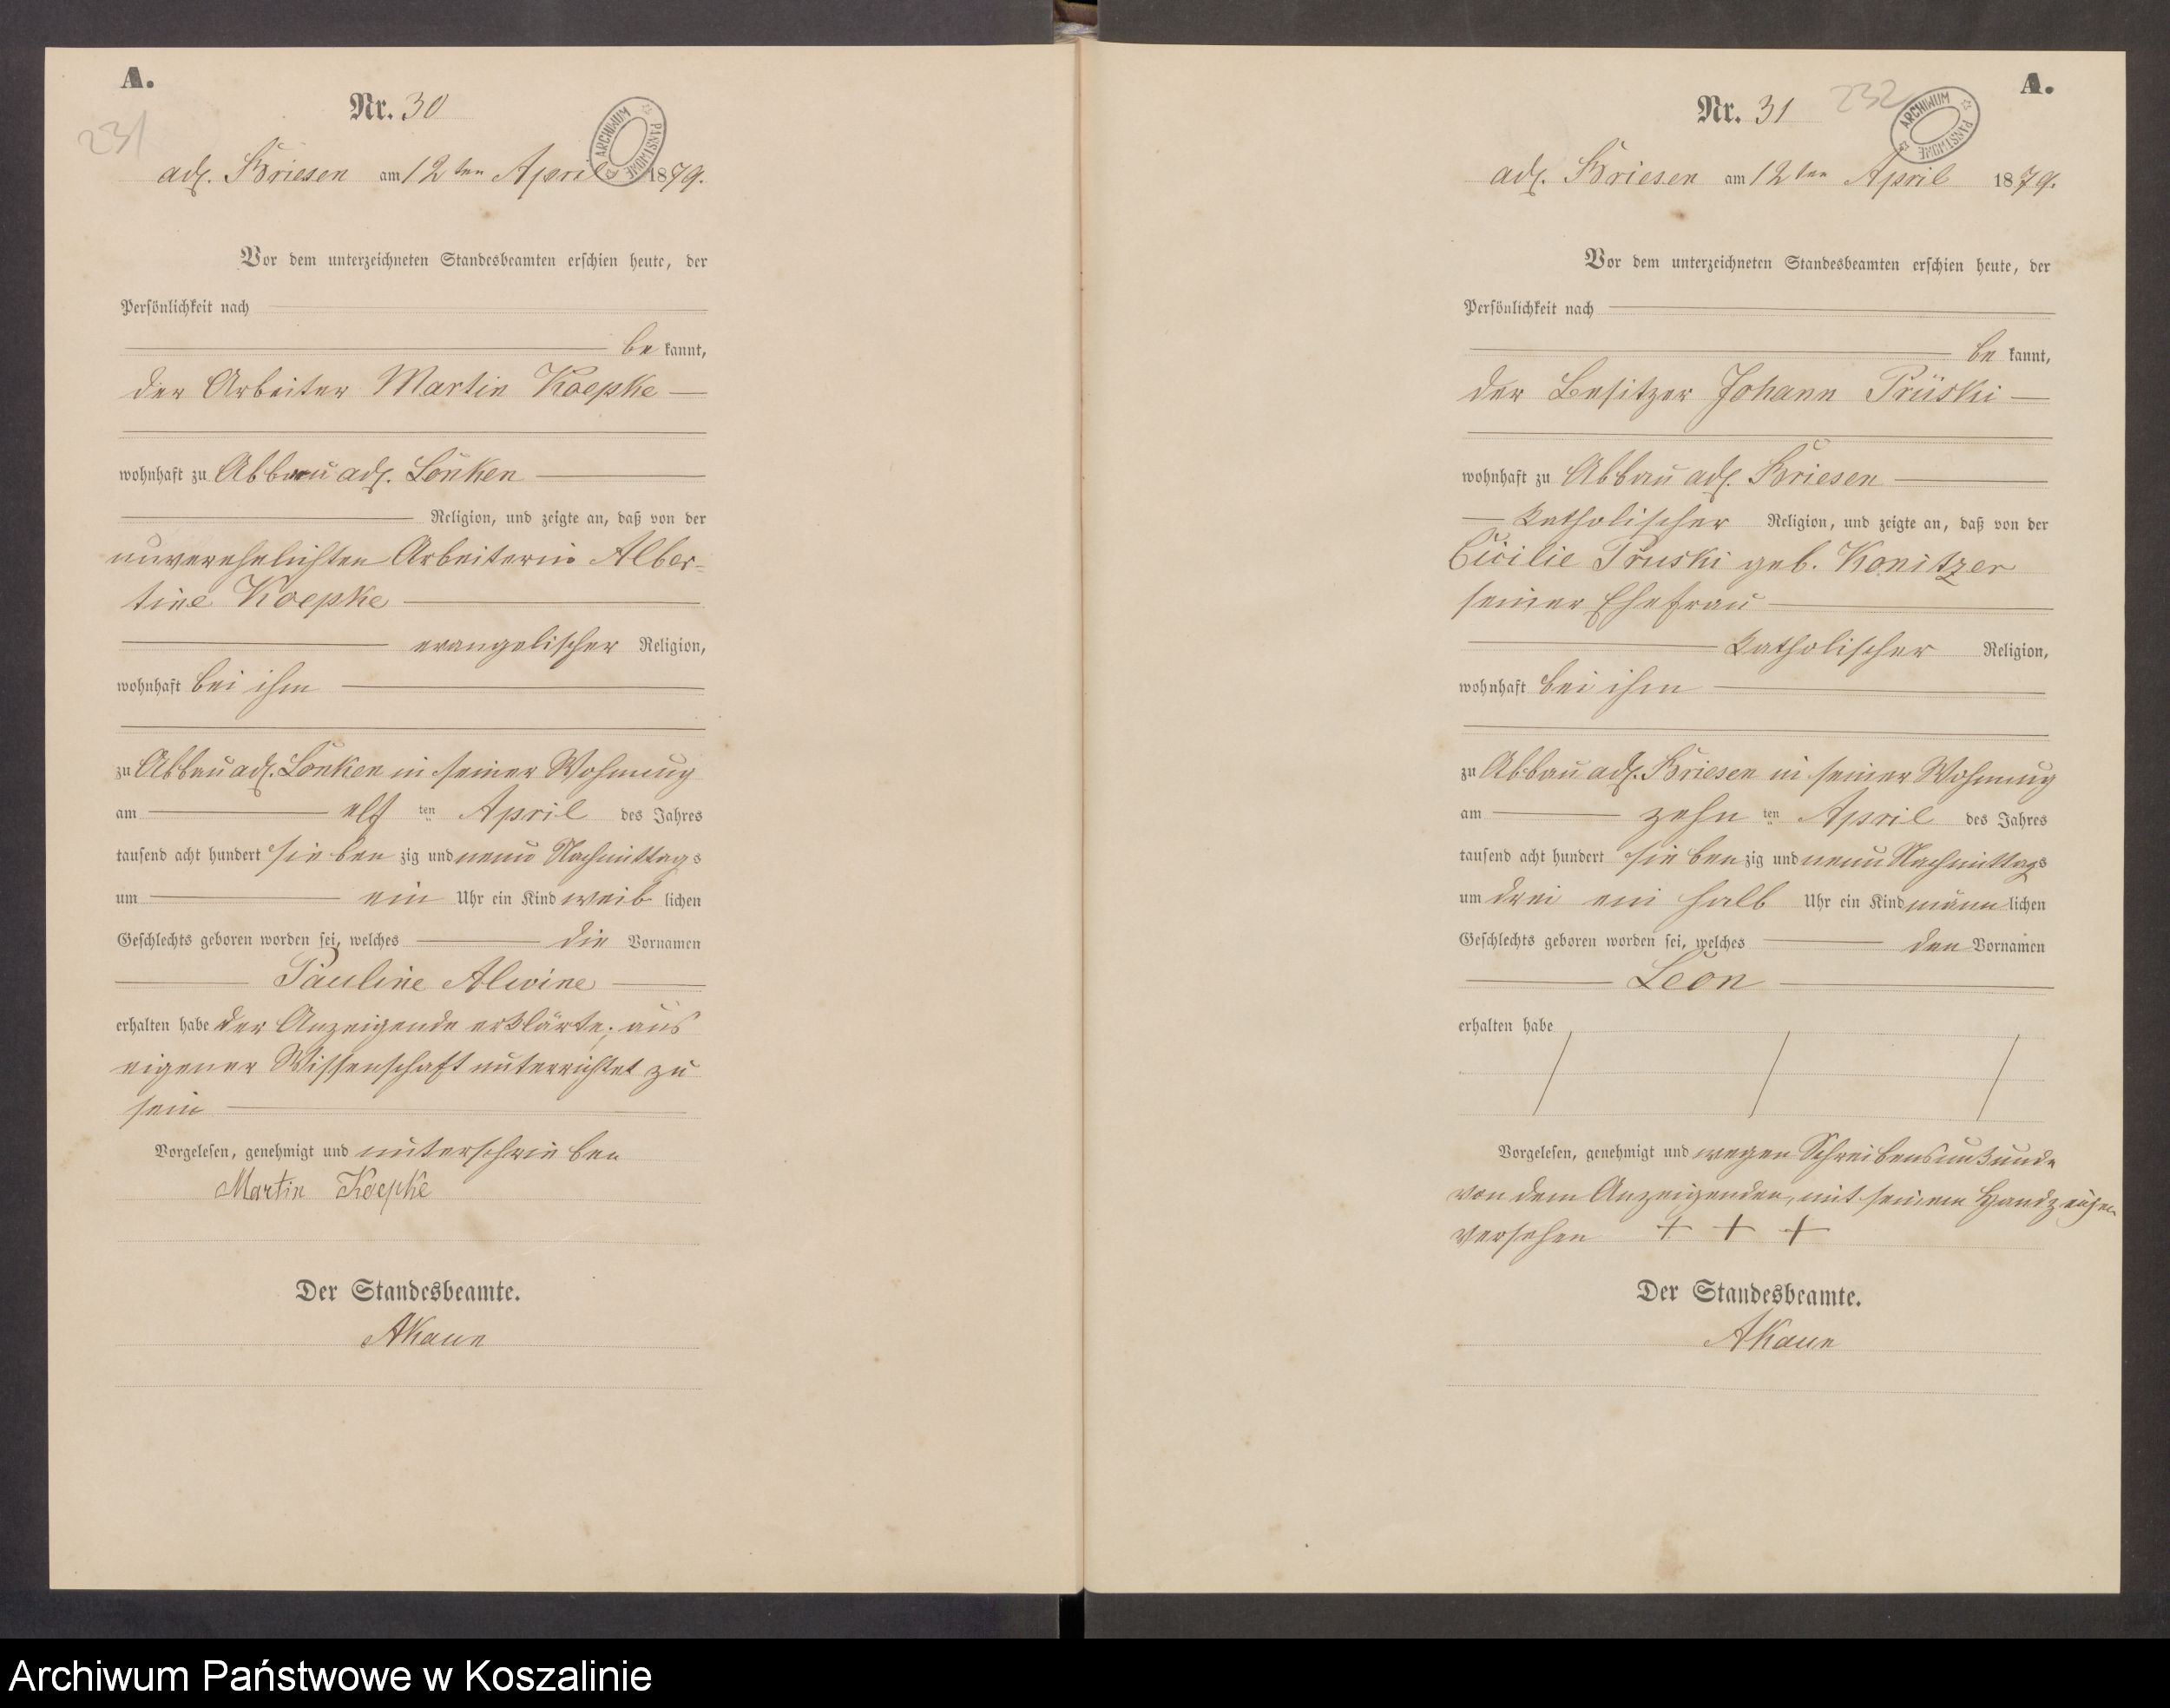 A.
231
Nr. 30
ARCHIWUM PAŃSTWOWE
adl. Briesen am 12ten April 1879.
Vor dem unterzeichneten Standesbeamten erschien heute, der
Persönlichkeit nach
be kannt,
der Arbeiter Martin Koepke
wohnhaft zu Abbau adl. Lonken
Religion, und zeigte an, daß von der
unverehelichten Arbeiterin Alber-
tine Koepke
evangelischer Religion,
wohnhaft bei ihm
zu Abbau adl. Lonken in seiner Wohnung
am elf ten April des Jahres
tausend acht hundert sieben zig und neun Nachmittags
um ein Uhr ein Kind weib lichen
Geschlechts geboren worden sei, welches die Vornamen
Pauline Alwine
erhalten habe der Anzeigende erklärte, aus
eigener Wissenschaft unterrichtet zu
sein
Vorgelesen, genehmigt und unterschrieben
Martin Koepke
Der Standesbeamte.
A Kaun
A.
232
Nr. 31
ARCHIWUM PAŃSTWOWE
adl. Briesen am 12ten April 1879.
Vor dem unterzeichneten Standesbeamten erschien heute, der
Persönlichkeit nach
be kannt,
der Besitzer Johann Prüski
wohnhaft zu Abbau adl. Briesen
katholischer Religion, und zeigte an, daß von der
Cicilie Pruski geb. Konitzer
seiner Ehefrau
katholischer Religion,
wohnhaft bei ihm
zu Abbau adl. Briesen in seiner Wohnung
am zehn ten April des Jahres
tausend acht hundert sieben zig und neun Nachmittags
um drei ein halb Uhr ein Kind männ lichen
Geschlechts geboren worden sei, welches den Vornamen
Leon
erhalten habe
Vorgelesen, genehmigt und wegen Schreibensunkunde
von dem Anzeigenden, mit seinem Handzeichen
versehen + + +
Der Standesbeamte.
A Kaun
Archiwum Państwowe w Koszalinie